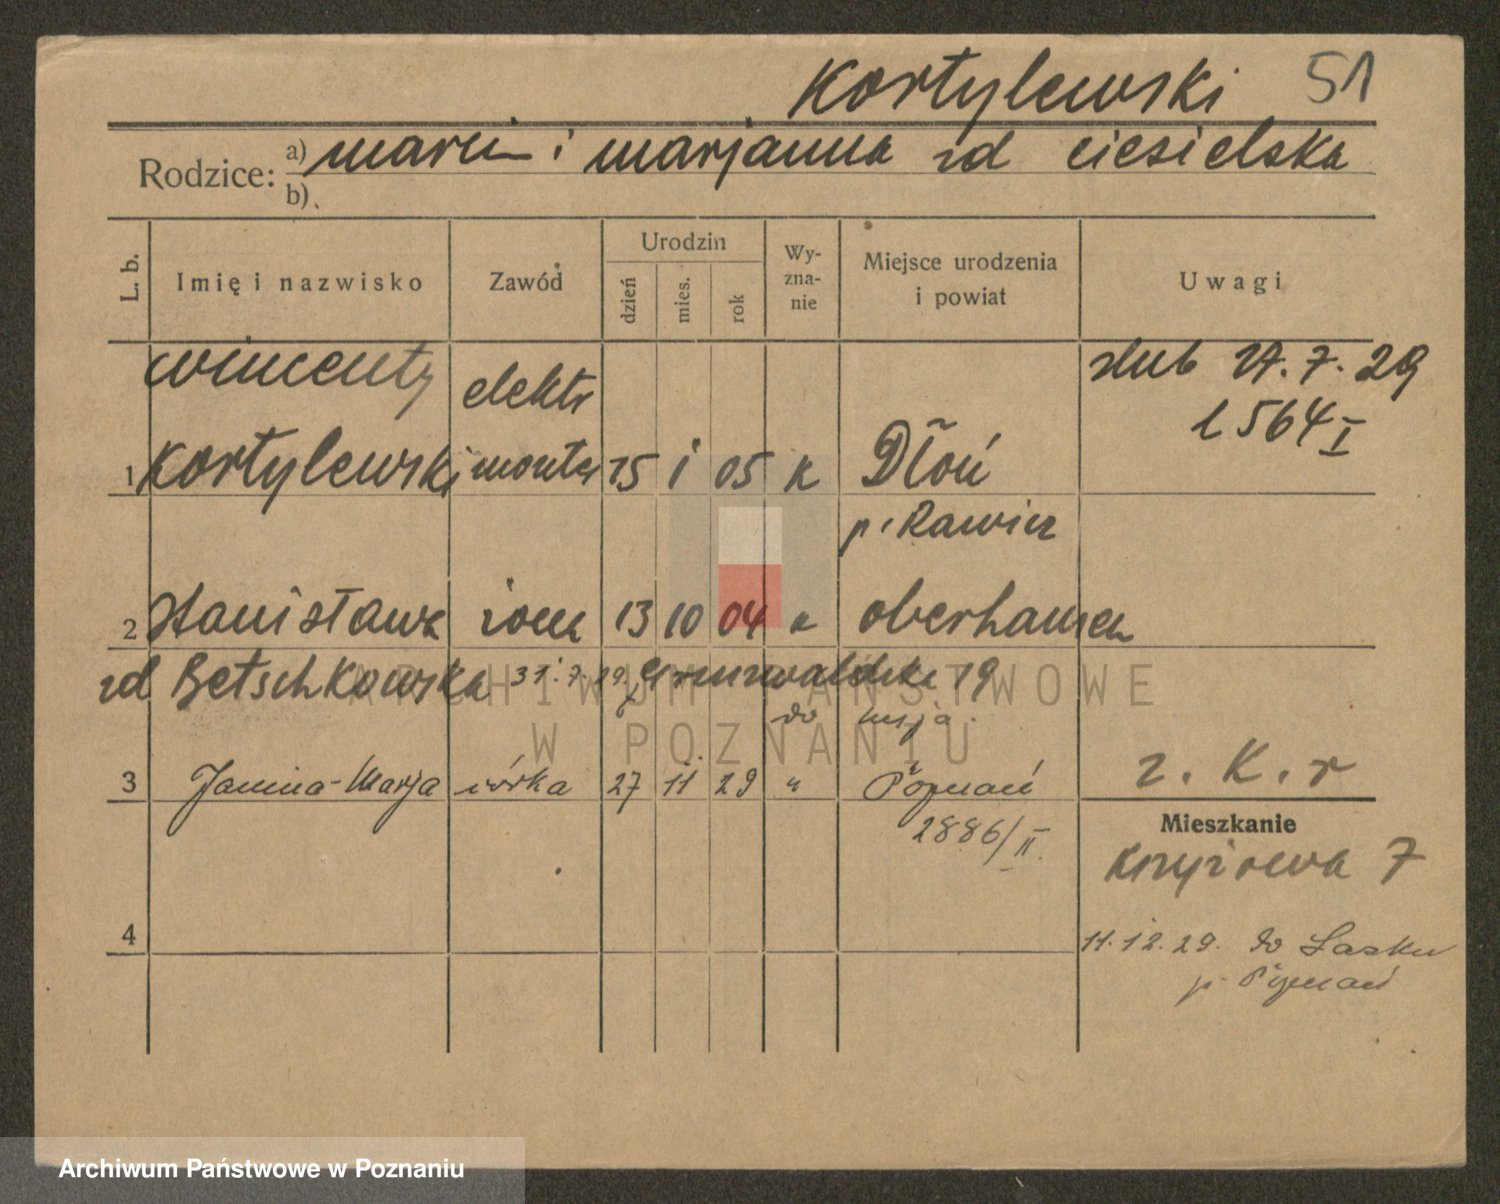 Kortylewski 51
Rodzice: a) Marcin i Marjanna zd Ciesielska
b)
L. b. Imię i nazwisko Zawód Urodzin dzień mies. rok Wyznanie Miejsce urodzenia i powiat Uwagi
Wincenty elektr ślub 27.7.29
1564 I
1 Kortylewski monter 15 1 05 k Dłoń
p. Rawicz
2 Stanisława żona 13 10 04 k Oberhausen
zd Betschkowska 31.7.29 Grunwaldzka 19
do męża
3 Janina-Marja córka 27 11 29 " Poznań z. K. r
2886/II
Mieszkanie
Krzyżowa 7
4
11.12.29. do Lasku
p. Poznań
ARCHIWUM PAŃSTWOWE
W POZNANIU
Archiwum Państwowe w Poznaniu